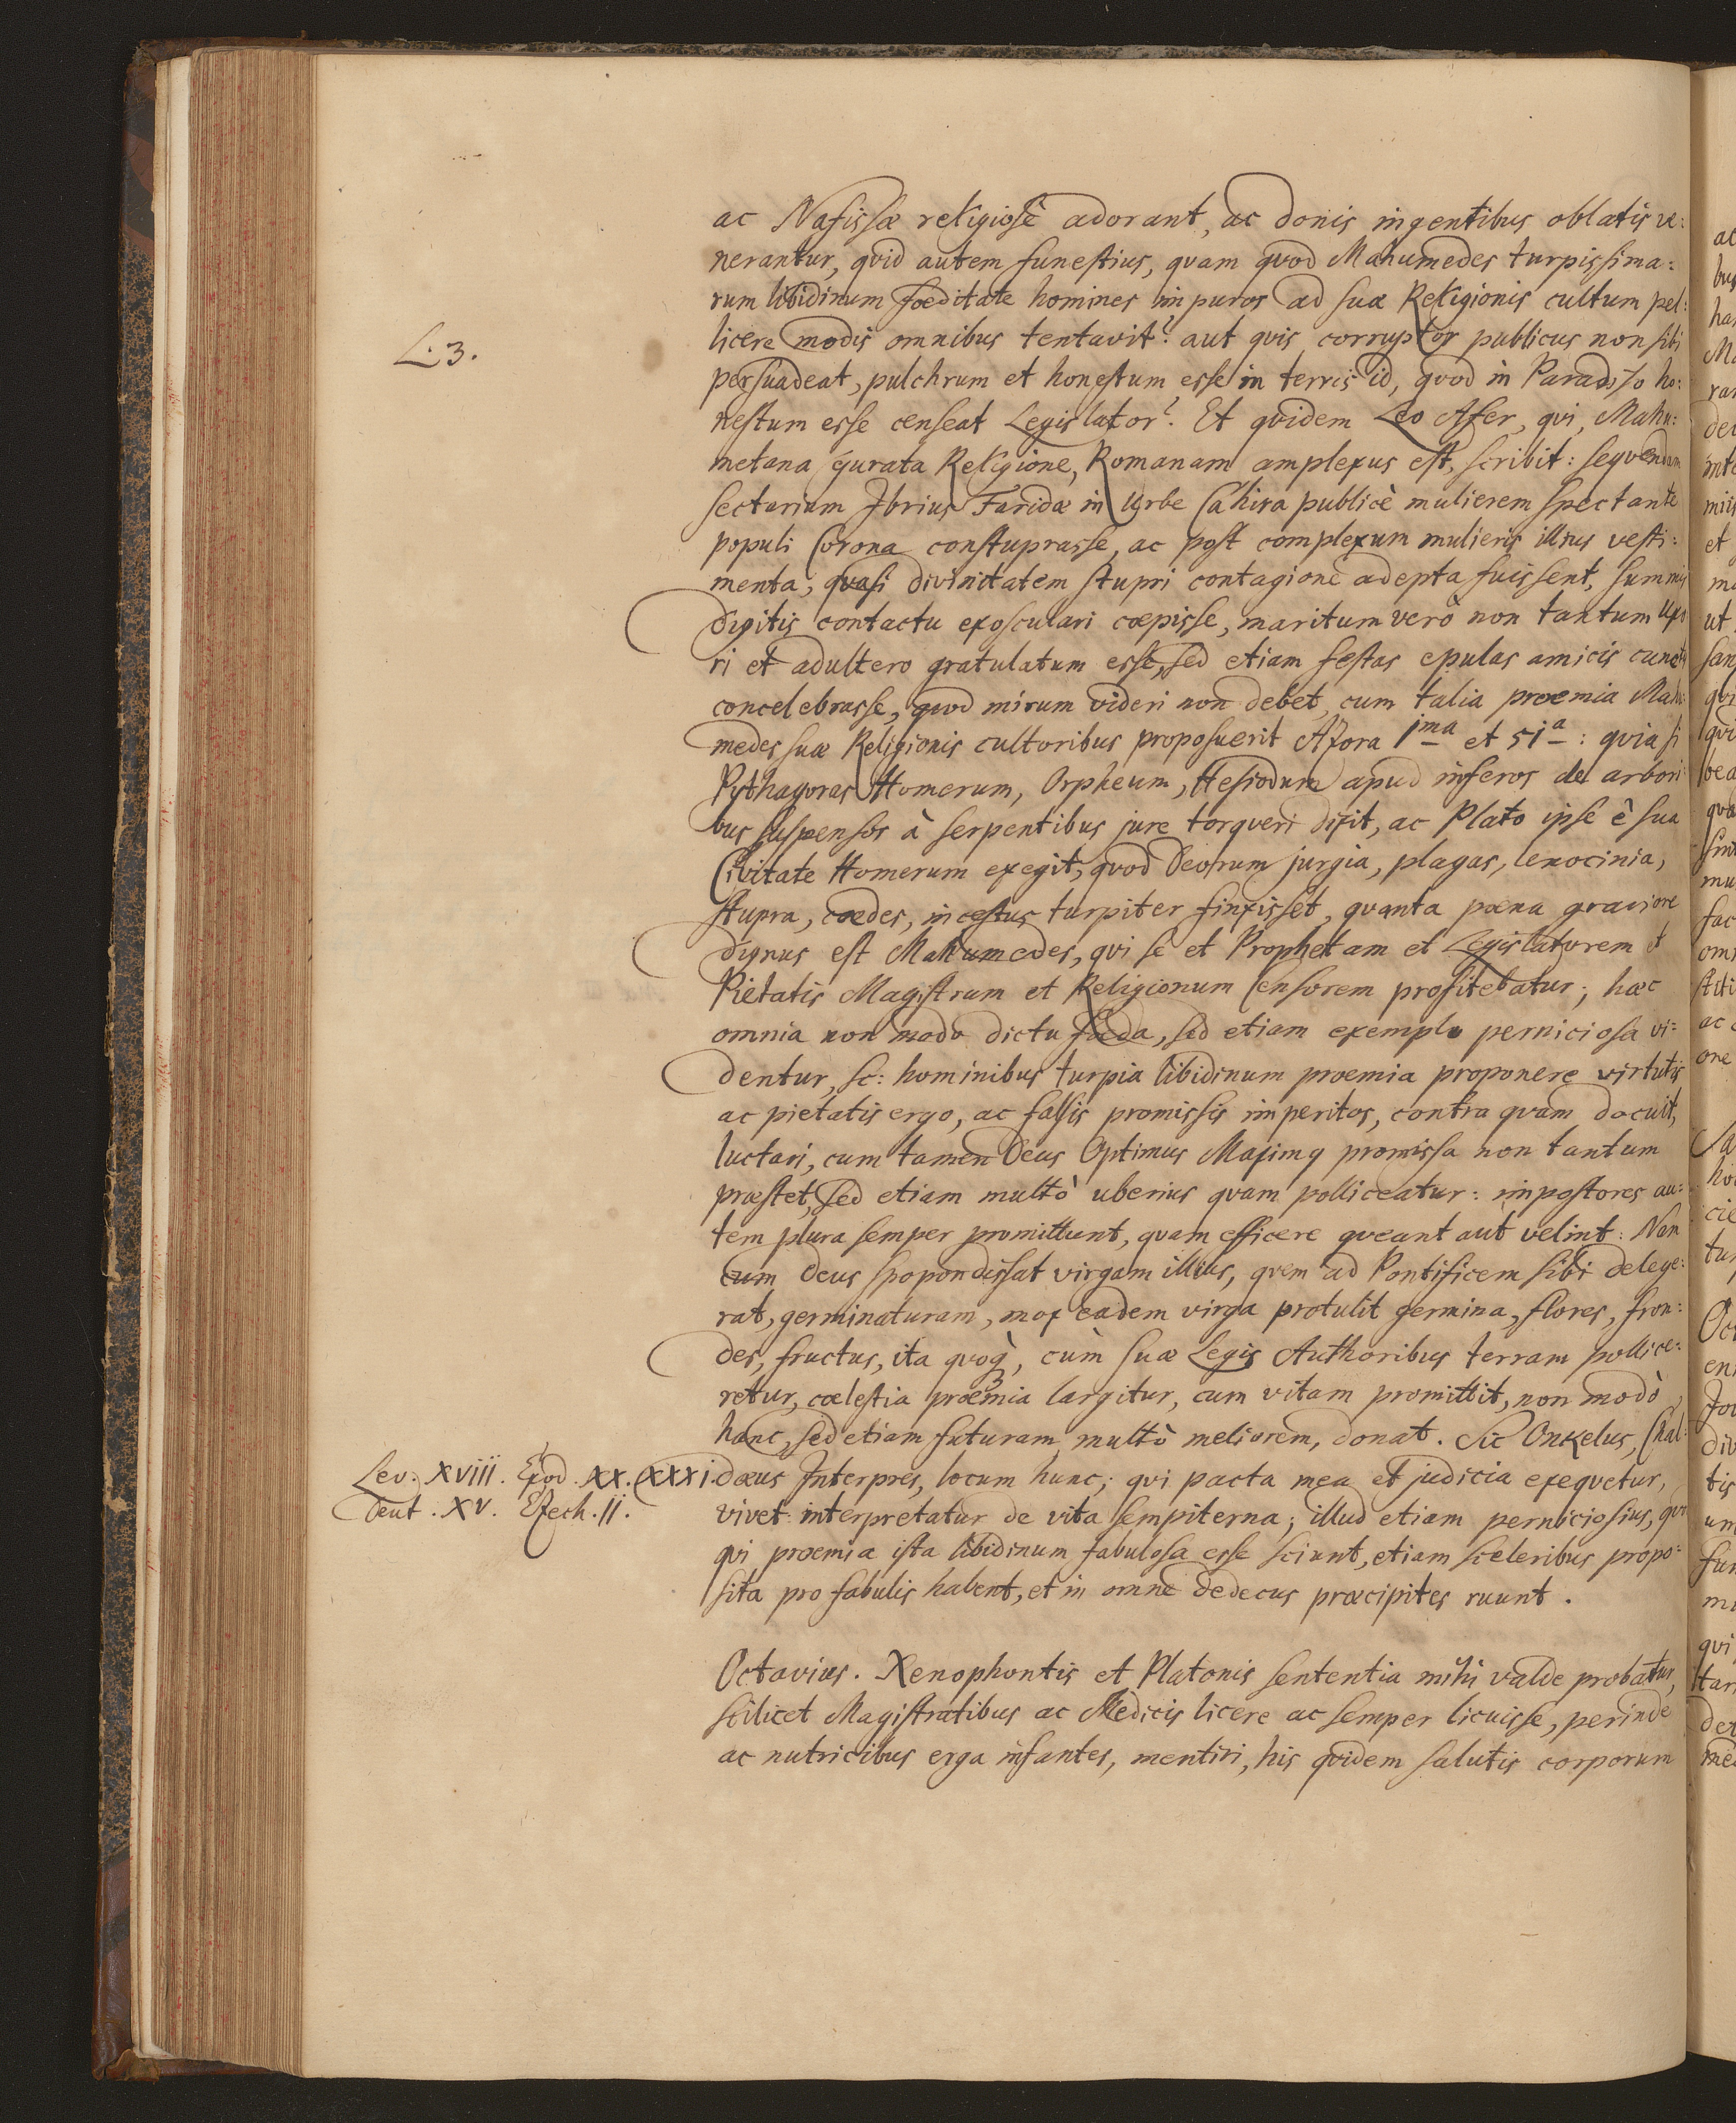 ac Nafissæ religiosè adorant, ac donis ingentibus oblatis ve:
nerantur, qvid autem funestius, qvam qvod Mahumedes turpissima:
rum libidinum foeditate homines impuros ad suæ Religionis cultum pel:
L. 3.
licere modis omnibus tentavit? aut qvis corruptor publicus non sibi
persuadeat, pulchrum et honestum esse in terris id, qvod in Paradiso ho:
nestum esse censeat Legislator? Et qvidem Leo Afer, qvi, Mahu:
metana gurata Religione, Romanam amplexus est, scribit: seqvendum
sectarium Ibrius Faridæ in Urbe Cahira publicè mulierem spectante
populi Corona constuprasse, ac post complexum mulieris illius vesti:
menta, qvasi divinitatem stupri contagione adepta fuissent, summis
digitis contactu exosculari coepisse, maritum verò non tantum Uxo
ri et adultero gratulatum esse, sed etiam festas epulas amicis cunctis
concelebrasse, qvod mirum videri non debet, cum talia proemia Mahu:
medes suæ Religionis cultoribus proposuerit Azora 1ma et 51a: qvia si
Pythagoras Homerum, Orpheum, Hesiodum apud inferos de arbori
bus suspensos à serpentibus jure torqveri dixit, ac Plato ipse è sua
Civitate Homerum exegit, qvod Deorum jurgia, plagas, lenocinia,
stupra, cædes, incestus turpiter finxisset, qvanta poena graviore
dignus est Mahumedes, qvi se et Prophetam et Legislatorem et
Pietatis Magistrum et Religionum Censorem profitebatur; hæc
omnia non modo dictu foeda, sed etiam exemplo perniciosa vi:
dentur, sc: hominibus turpia libidinum proemia proponere virtutis
ac pietatis ergo, ac falsis promissis imperitos, contra qvam docuit,
luctari, cum tamen Deus Optimus Maximq promissa non tantum
præstet, sed etiam multò uberius qvam polliceatur: impostores au:
tem plura semper promittunt, qvam efficere qveant aut velint: Nam
cum Deus spopondissat virgam illius, qvem ad Pontificem sibi delege:
rat, germinaturam, mox eadem virga protulit germina, flores, fron:
des, fructus, ita qvoq, cùm suæ Legis Authoribus terram pollice:
retur, coelestia proemia largitur, cum vitam promittit, non modò
hanc, sed etiam futuram multò meliorem, donat. Sic Onkelus, Chal:
Lev: XVIII. Exod. XX. XXXI.
Deut. XV. Ezech. II.
dæus Interpres, locum hunc; qvi pacta mea et judicia exeqvetur,
vivet: interpretatur de vita sempiterna; illud etiam perniciosius, qvi
qvi proemia ista libidinum fabulosa esse sciunt, etiam sceleribus propo:
sita pro fabulis habent, et in omne dedecus præcipites ruunt.
Octavius. Xenophontis et Platonis sententia mihi valde probatur,
scilicet Magistratibus ac Medicis licere ac semper licuisse, perinde
ac nutricibus erga infantes, mentiri, his qvidem salutis corporum